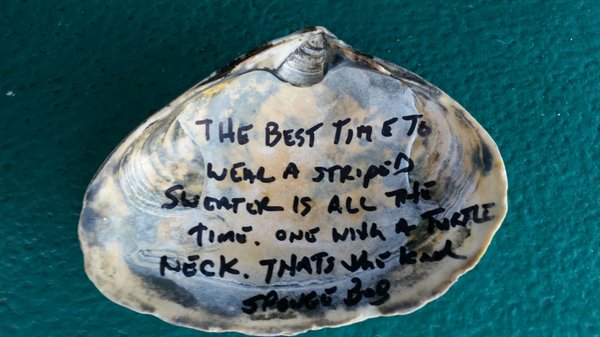 THE BEST TIME TO
WEAR A STRIPED
SWEATER IS ALL THE
TIME. ONE WITH A TURTLE
NECK. THATS THE KIND
SPONGE BOB